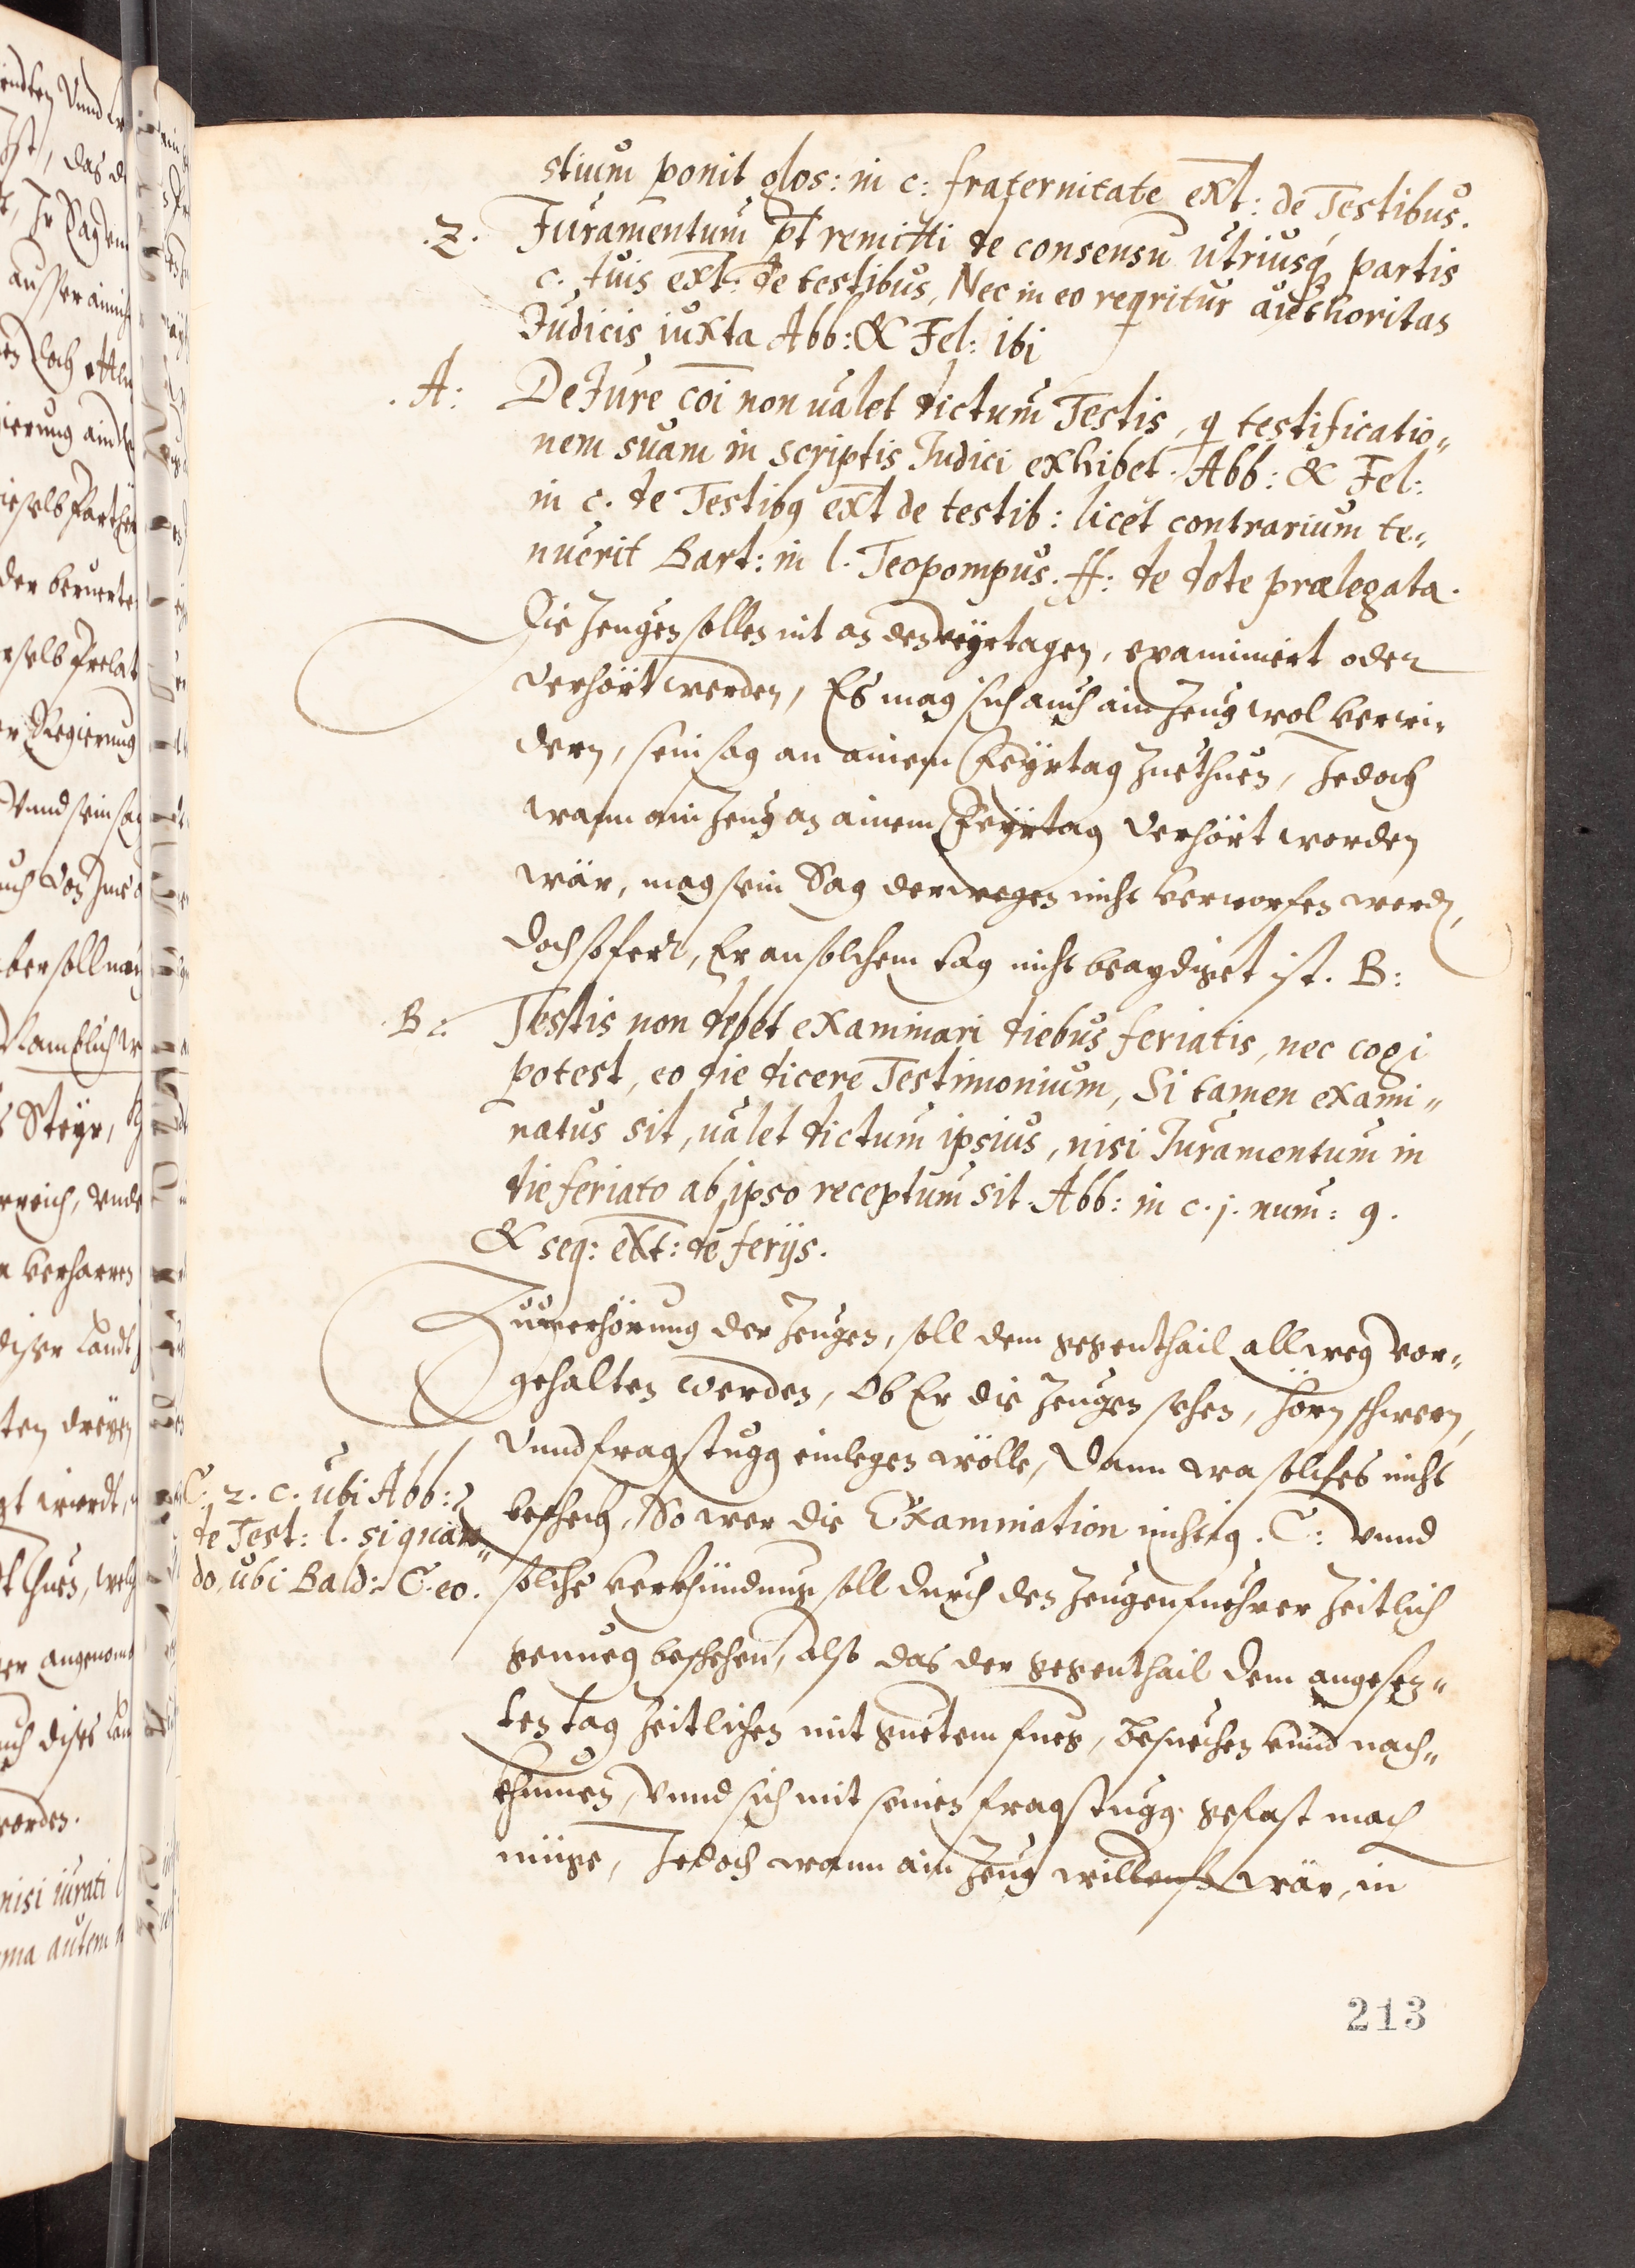 stium ponit glos: in c: fraternitate ext: de Testibus.
.2. Juramentum pt remitti de consensu utriusq partis
c. tuis ext: de testibus, Nec in eo reqritur authoritas
Judicis iuxta Abb: & Fel: ibi
.A: De Jure coi non ualet dictum Testis, q testificatio„
nem suam in scriptis Judici exhibet. Abb: & Fel:
in c. de Testibq ext de testib: licet contrarium te„
nuerit Bart: in l. Teopompus. ff: de dote prælegata.
Die Zeugen sollen nit an den Feyrtagen, examiniert oder
verhört werden, Es mag sich auch ain Zeug wol verwi„
dern, sein sag an ainem Feyrtag zuethuen, Jedoch
wann ain Zeug an ainem Feyrtag verhört worden
wär, mag sein Sag derwegen nicht verworfen werdn,
doch sofern, Er an solchem tag nicht beaydiget ist. B:
B: Testis non debet examinari diebus feriatis, nec cogi
potest, eo die dicere Testimonium, Si tamen exami„
natus sit, ualet dictum ipsius, nisi Juramentum in
die feriato ab ipso receptum sit. Abb: in c. j. num: 9.
& seq: ext: de ferijs.
Zu verhörung der Zeugen, soll dem gegenthail allweg vor„
gehalten werden, Ob Er die Zeugen sehen, hörn schwern,
vnnd fragstugg einlegen wölle, dann wa solches nicht
beschech, So wer die Examination nichtig. C: vnnd
C. 2. c. ubi Abb:
de Test: l. si quan„
do, ubi Bald: C. eo.
solche verkhündung soll durch den Zeugenfuehrer zeitlich
genueg beschehen, also das der gegenthail dem angesez„
ten tag zeitlichen mit guetem fueg, besuechen vnnd nach„
khumen, vnnd sich mit seinen fragstugg gefast mach
müge, Jedoch wann ain Zeug willens wär, in
213